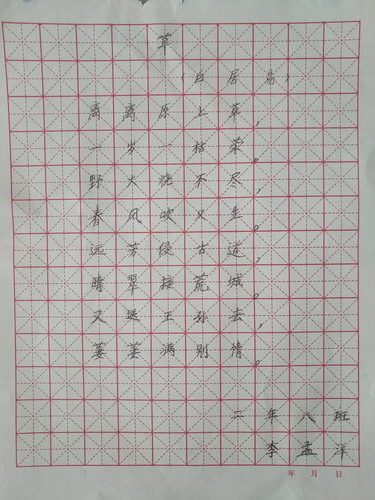 草
（白居易）
离离原上草，
一岁一枯荣。
野火烧不尽，
春风吹又生。
远芳侵古道，
晴翠接荒城。
又送王孙去，
萋萋满别情。
二年八班
李孟洋
年 月 日